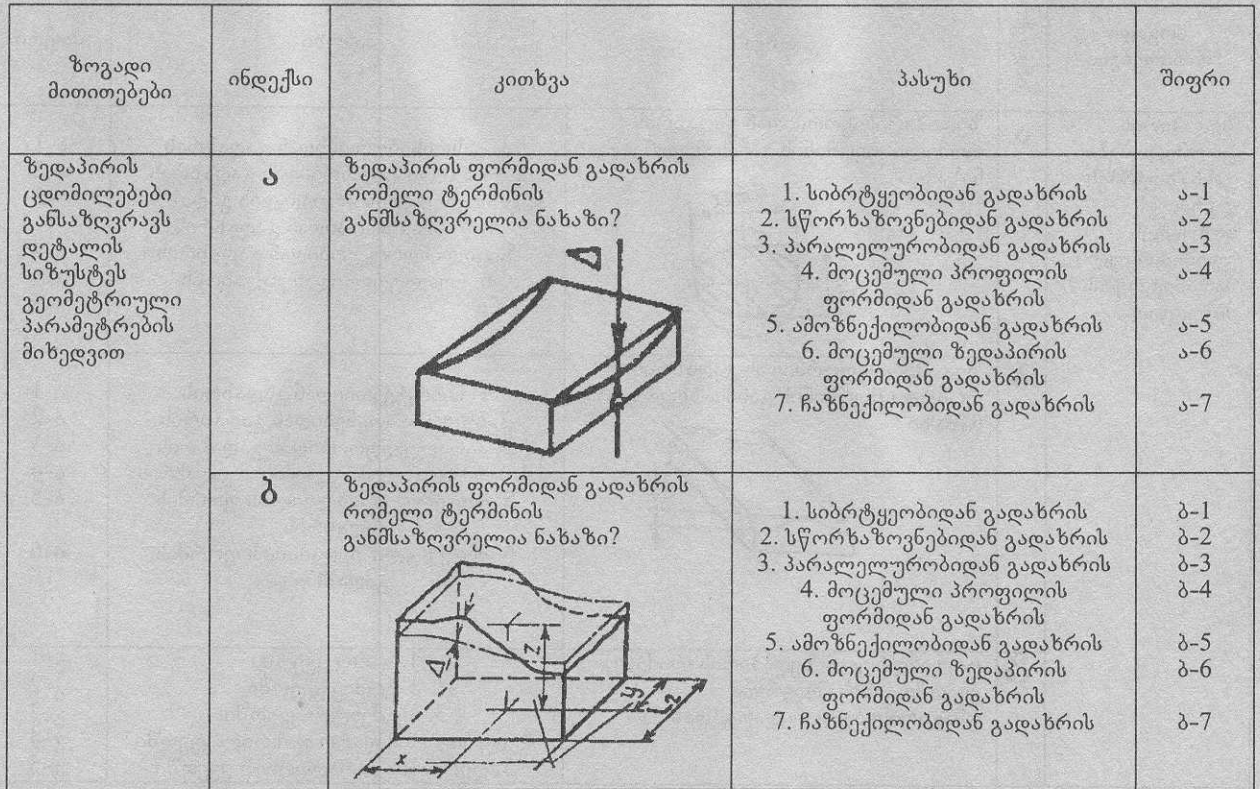 ზოგადი
მითითებები
ინდექსი
კითხვა
პასუხი
შიფრი
ზედაპირის
ცდომილებები
განსაზღვრავს
დეტალის
სიზუსტეს
გეომეტრიული
პარამეტრების
მიხედვით
ა
ზედაპირის ფორმიდან გადახრის
რომელი ტერმინის
განმსაზღვრელია ნახაზი?
Δ
1. სიბრტყეობიდან გადახრის ა-1
2. სწორხაზოვნებიდან გადახრის ა-2
3. პარალელურობიდან გადახრის ა-3
4. მოცემული პროფილის ა-4
ფორმიდან გადახრის
5. ამოზნექილობიდან გადახრის ა-5
6. მოცემული ზედაპირის ა-6
ფორმიდან გადახრის
7. ჩაზნექილობიდან გადახრის ა-7
ბ
ზედაპირის ფორმიდან გადახრის
რომელი ტერმინის
განმსაზღვრელია ნახაზი?
Δ
Z
y
x
1. სიბრტყეობიდან გადახრის ბ-1
2. სწორხაზოვნებიდან გადახრის ბ-2
3. პარალელურობიდან გადახრის ბ-3
4. მოცემული პროფილის ბ-4
ფორმიდან გადახრის
5. ამოზნექილობიდან გადახრის ბ-5
6. მოცემული ზედაპირის ბ-6
ფორმიდან გადახრის
7. ჩაზნექილობიდან გადახრის ბ-7